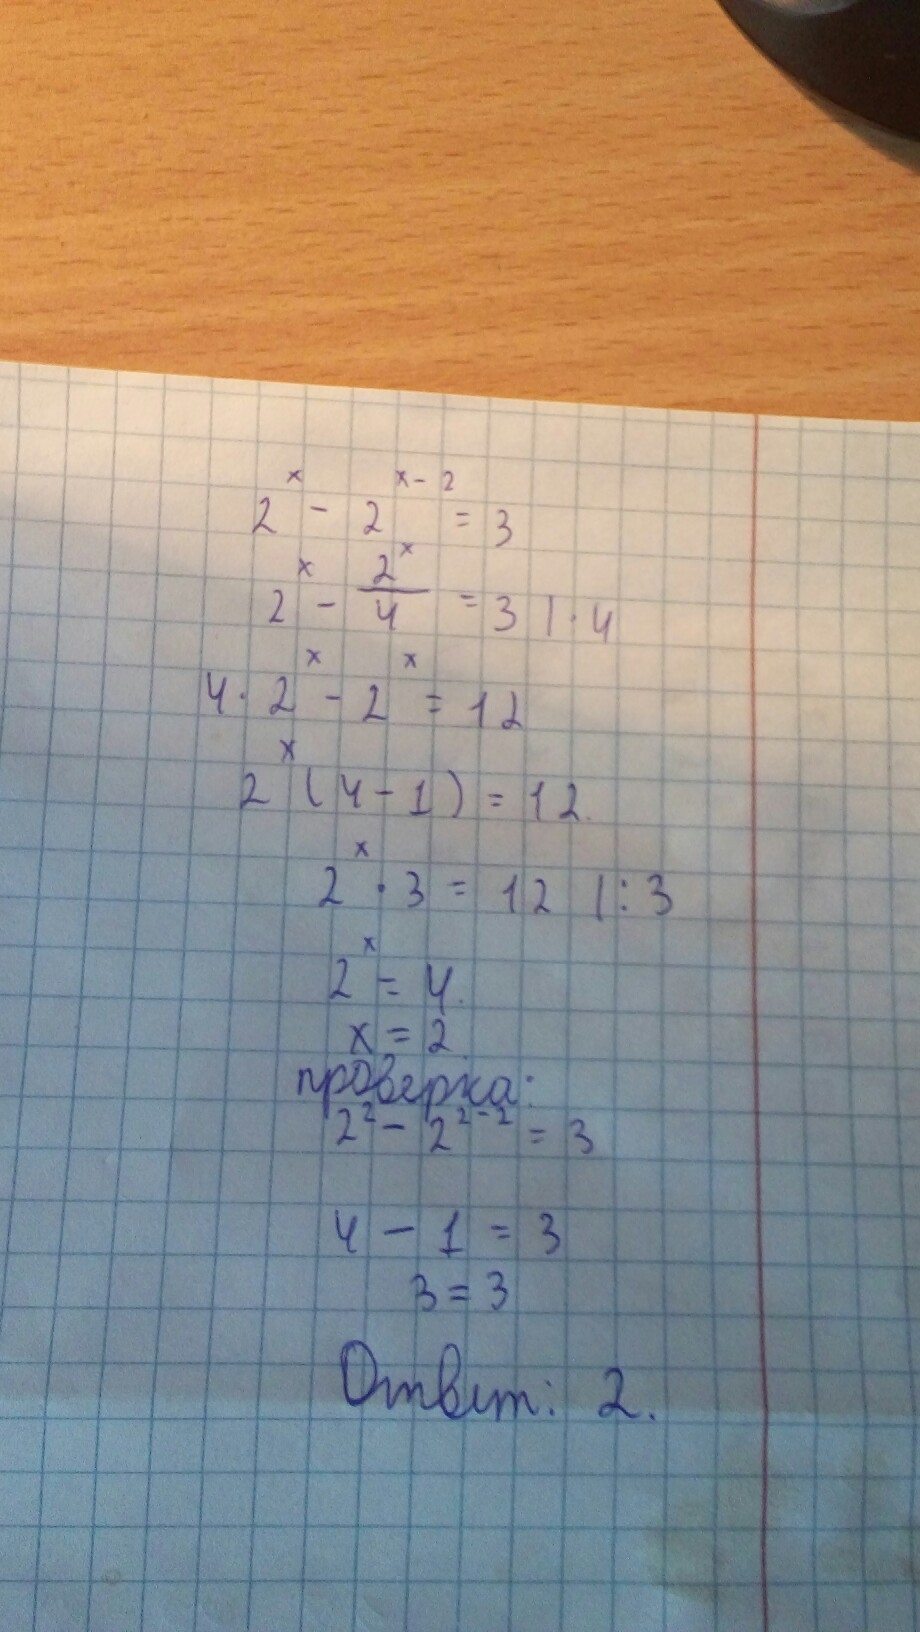 2^x - 2^(x-2) = 3
2^x - 2^x/4 = 3 | · 4
4 · 2^x - 2^x = 12
2^x (4 - 1) = 12.
2^x · 3 = 12 | : 3
2^x = 4.
x = 2
проверка:
2^2 - 2^(2-2) = 3
4 - 1 = 3
3 = 3
Ответ: 2.